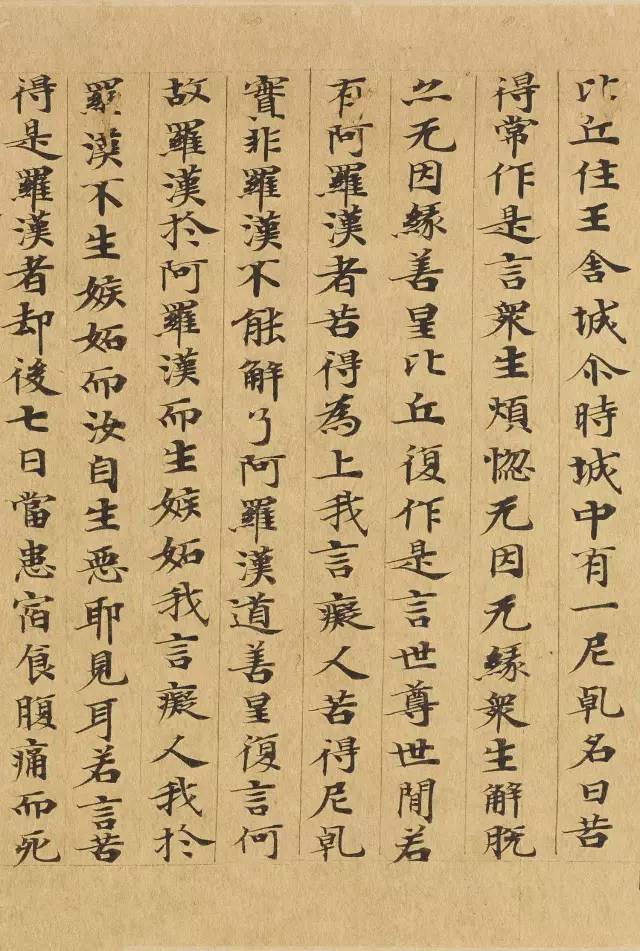 比丘住王舍城尒時城中有一尼乹名曰苦
得常作是言衆生煩惚无因无緣衆生解脫
亦无因緣善星比丘復作是言世尊世間若
有阿羅漢者苦得為上我言癡人苦得尼乹
實非羅漢不能解了阿羅漢道善星復言何
故羅漢於阿羅漢而生嫉妬我言癡人我於
羅漢不生嫉妬而汝自生惡耶見耳若言苦
得是羅漢者却後七日當患宿食腹痛而死